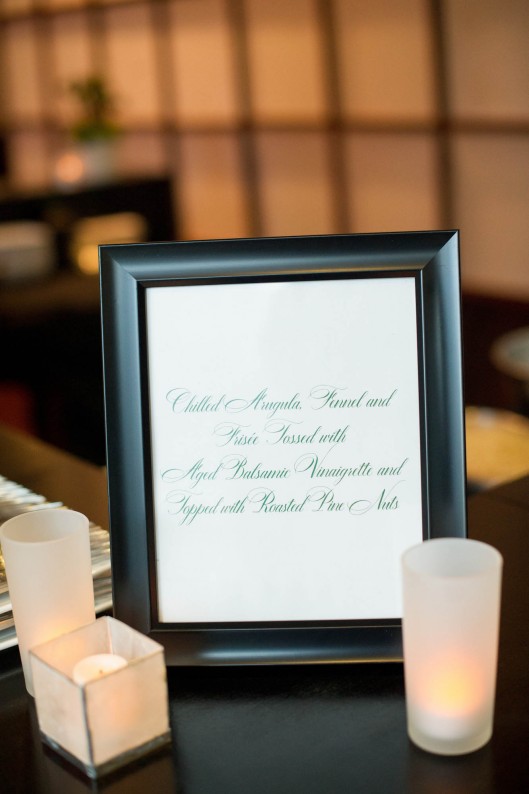 Chilled Arugula, Fennel and
Frisée Tossed with
Aged Balsamic Vinaigrette and
Topped with Roasted Pine Nuts